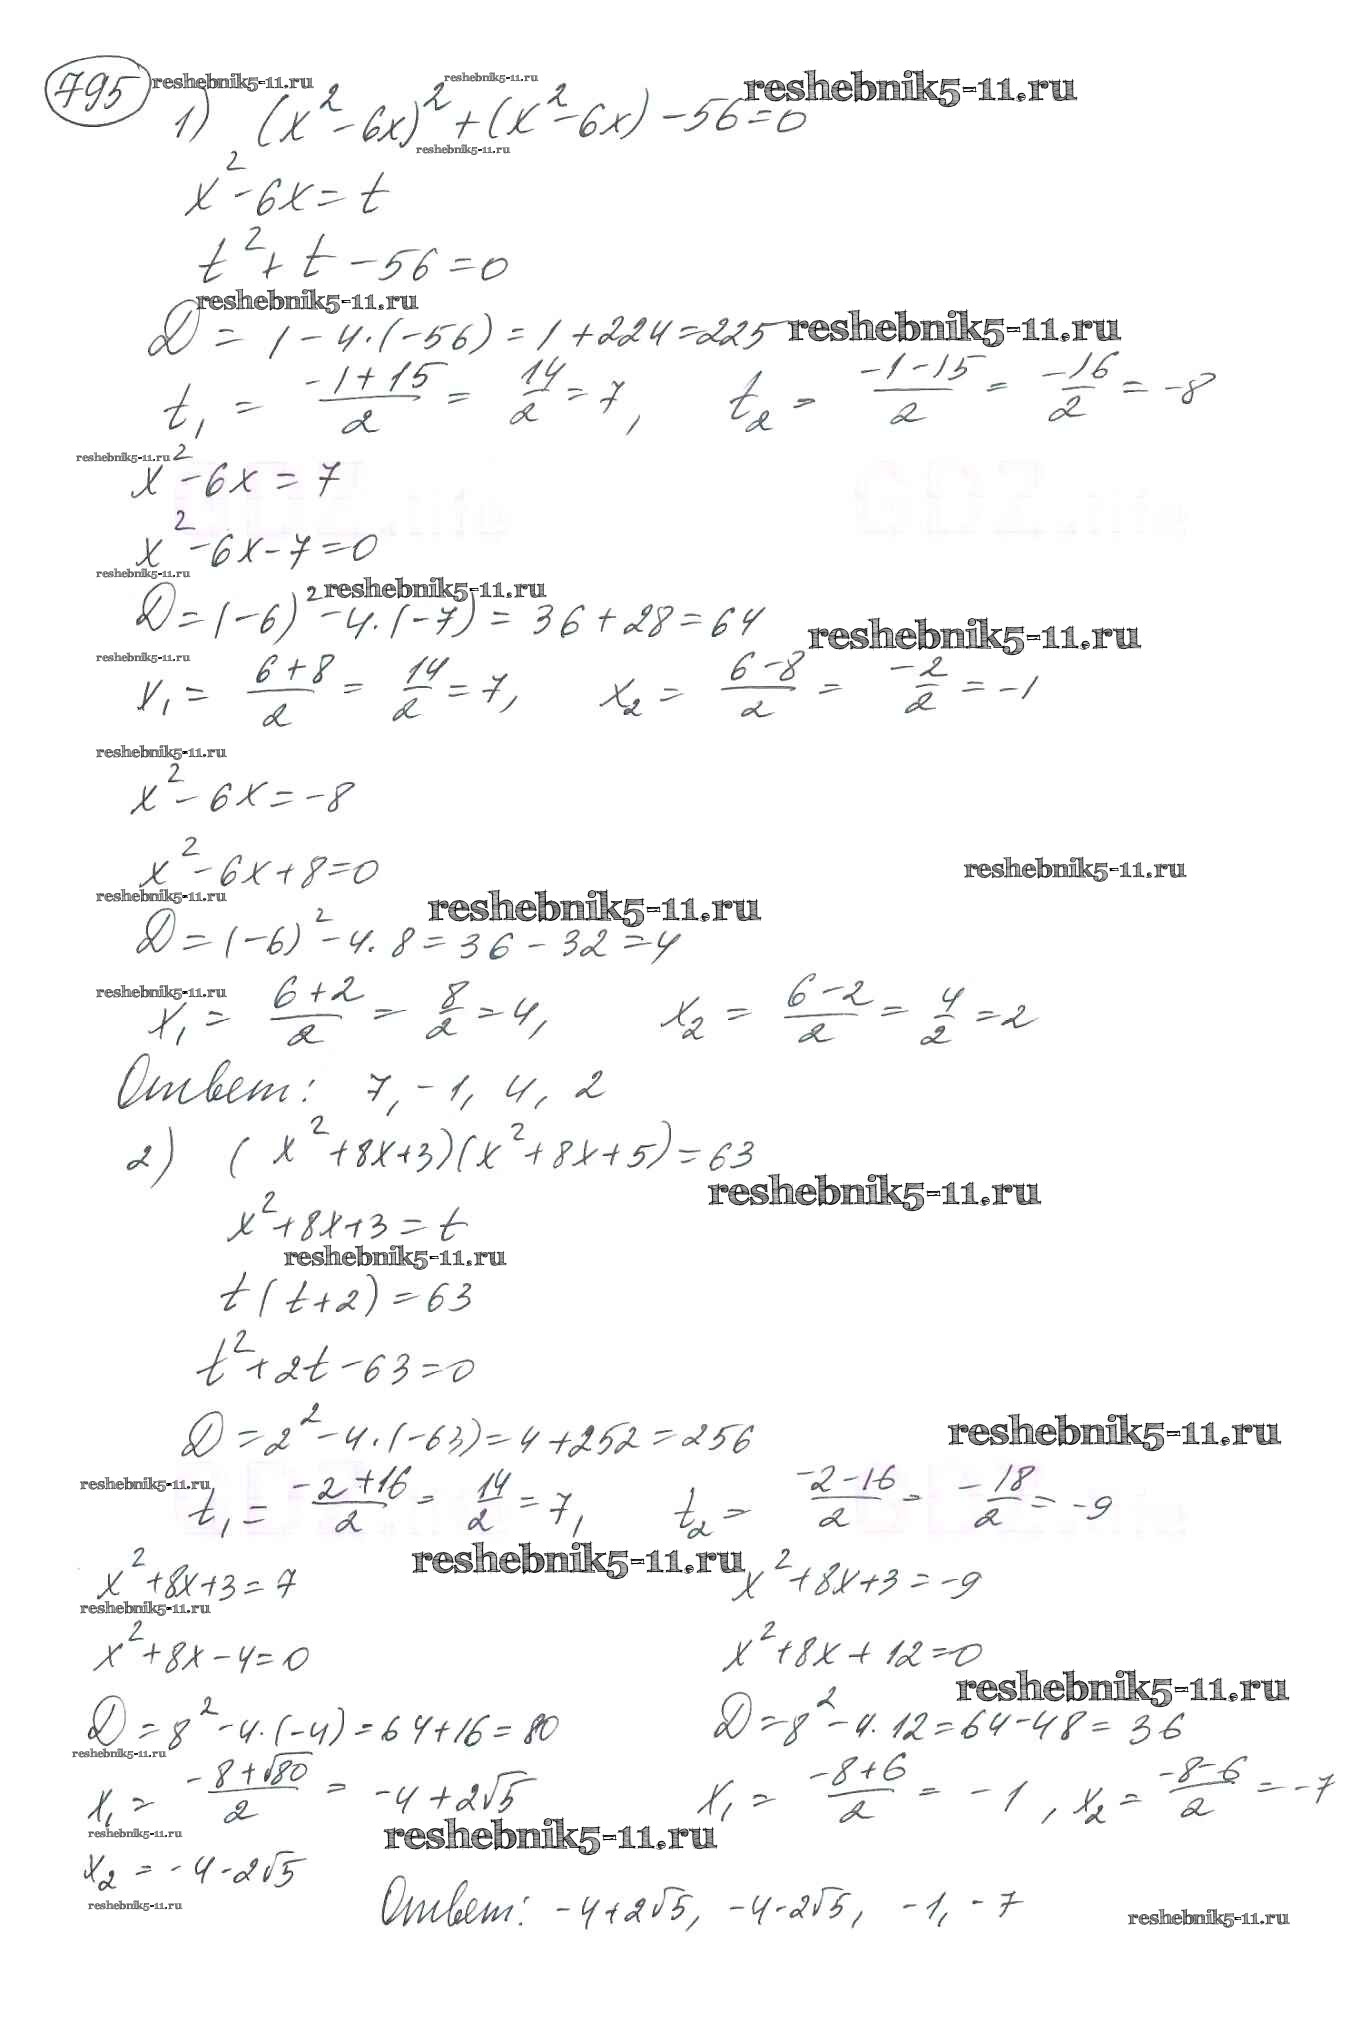 795 reshebnik5-11.ru reshebnik5-11.ru reshebnik5-11.ru
1) (x²-6x)²+(x²-6x)-56=0
reshebnik5-11.ru
x²-6x=t
t²+t-56=0
reshebnik5-11.ru
D=1-4·(-56)=1+224=225 reshebnik5-11.ru
t₁ = (-1+15)/2 = 14/2 = 7, t₂ = (-1-15)/2 = -16/2 = -8
reshebnik5-11.ru
x²-6x=7
GDZ.life GDZ.life
x²-6x-7=0
reshebnik5-11.ru
reshebnik5-11.ru
D=(-6)²-4·(-7)=36+28=64 reshebnik5-11.ru
reshebnik5-11.ru
x₁ = (6+8)/2 = 14/2 = 7, x₂ = (6-8)/2 = -2/2 = -1
reshebnik5-11.ru
x²-6x=-8
x²-6x+8=0 reshebnik5-11.ru
reshebnik5-11.ru reshebnik5-11.ru
D=(-6)²-4·8=36-32=4
reshebnik5-11.ru
x₁ = (6+2)/2 = 8/2 = 4, x₂ = (6-2)/2 = 4/2 = 2
Ответ: 7, -1, 4, 2
2) (x²+8x+3)(x²+8x+5)=63
reshebnik5-11.ru
x²+8x+3=t
reshebnik5-11.ru
t(t+2)=63
t²+2t-63=0
D=2²-4·(-63)=4+252=256 reshebnik5-11.ru
reshebnik5-11.ru
t₁ = (-2+16)/2 = 14/2 = 7, t₂ = (-2-16)/2 = -18/2 = -9
reshebnik5-11.ru
x²+8x+3=7 x²+8x+3=-9
reshebnik5-11.ru
x²+8x-4=0 x²+8x+12=0
reshebnik5-11.ru
D=8²-4·(-4)=64+16=80 D=8²-4·12=64-48=36
reshebnik5-11.ru
x₁ = (-8+√80)/2 = -4+2√5 x₁ = (-8+6)/2 = -1, x₂ = (-8-6)/2 = -7
reshebnik5-11.ru reshebnik5-11.ru
x₂ = -4-2√5
reshebnik5-11.ru
Ответ: -4+2√5, -4-2√5, -1, -7
reshebnik5-11.ru